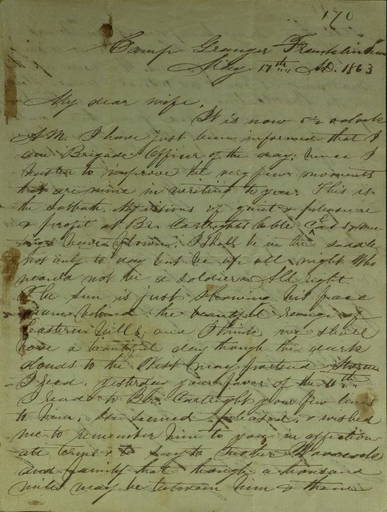 170
Camp Granger Franklin Tenn
17th AD. 1863
My dear wife,
It is now 5 o clock
A.M. I have just been informed that I
am Brigade Officer of the day, hence I
hasten to improve the very few moments
that are mine in writing to you. This is
the Sabbath. My visions of quiet & pleasure
& profit at Br. Cartrights table
I shall be in the saddle
not only to day but be up all night. Who
would not be a soldier. All right
The sun is just showing his face
from behind the beautiful range of
eastern hills, and I think we shall
have a beautiful day though the dark
clouds to the West may portend storm
I read yesterday your favor of the 11th.
I read to Br. Cartright your few lines
to him, he seemed pleased, & wished
me to remember him to you in affection
ate terms & to say to Mother
and family that though a thousand
miles may be between him & them